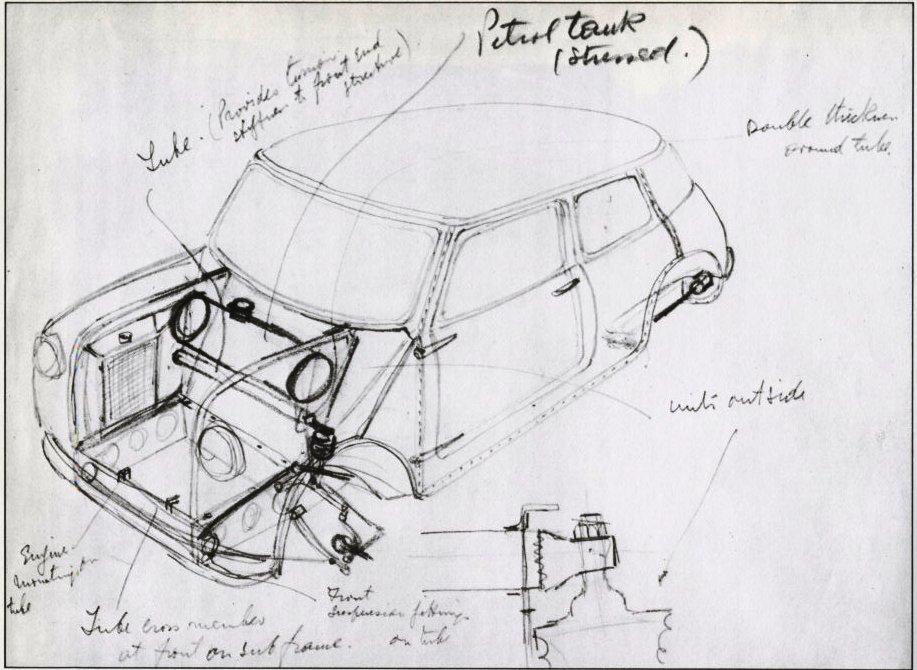 Petrol tank
(stressed.)
Tube. (Provides torsion
stiffness to front end
structure)
Double thickness
around tube.
units outside
Engine
mounting on
tube
Tube cross member
at front on sub frame.
Front
suspension fittings
on tube